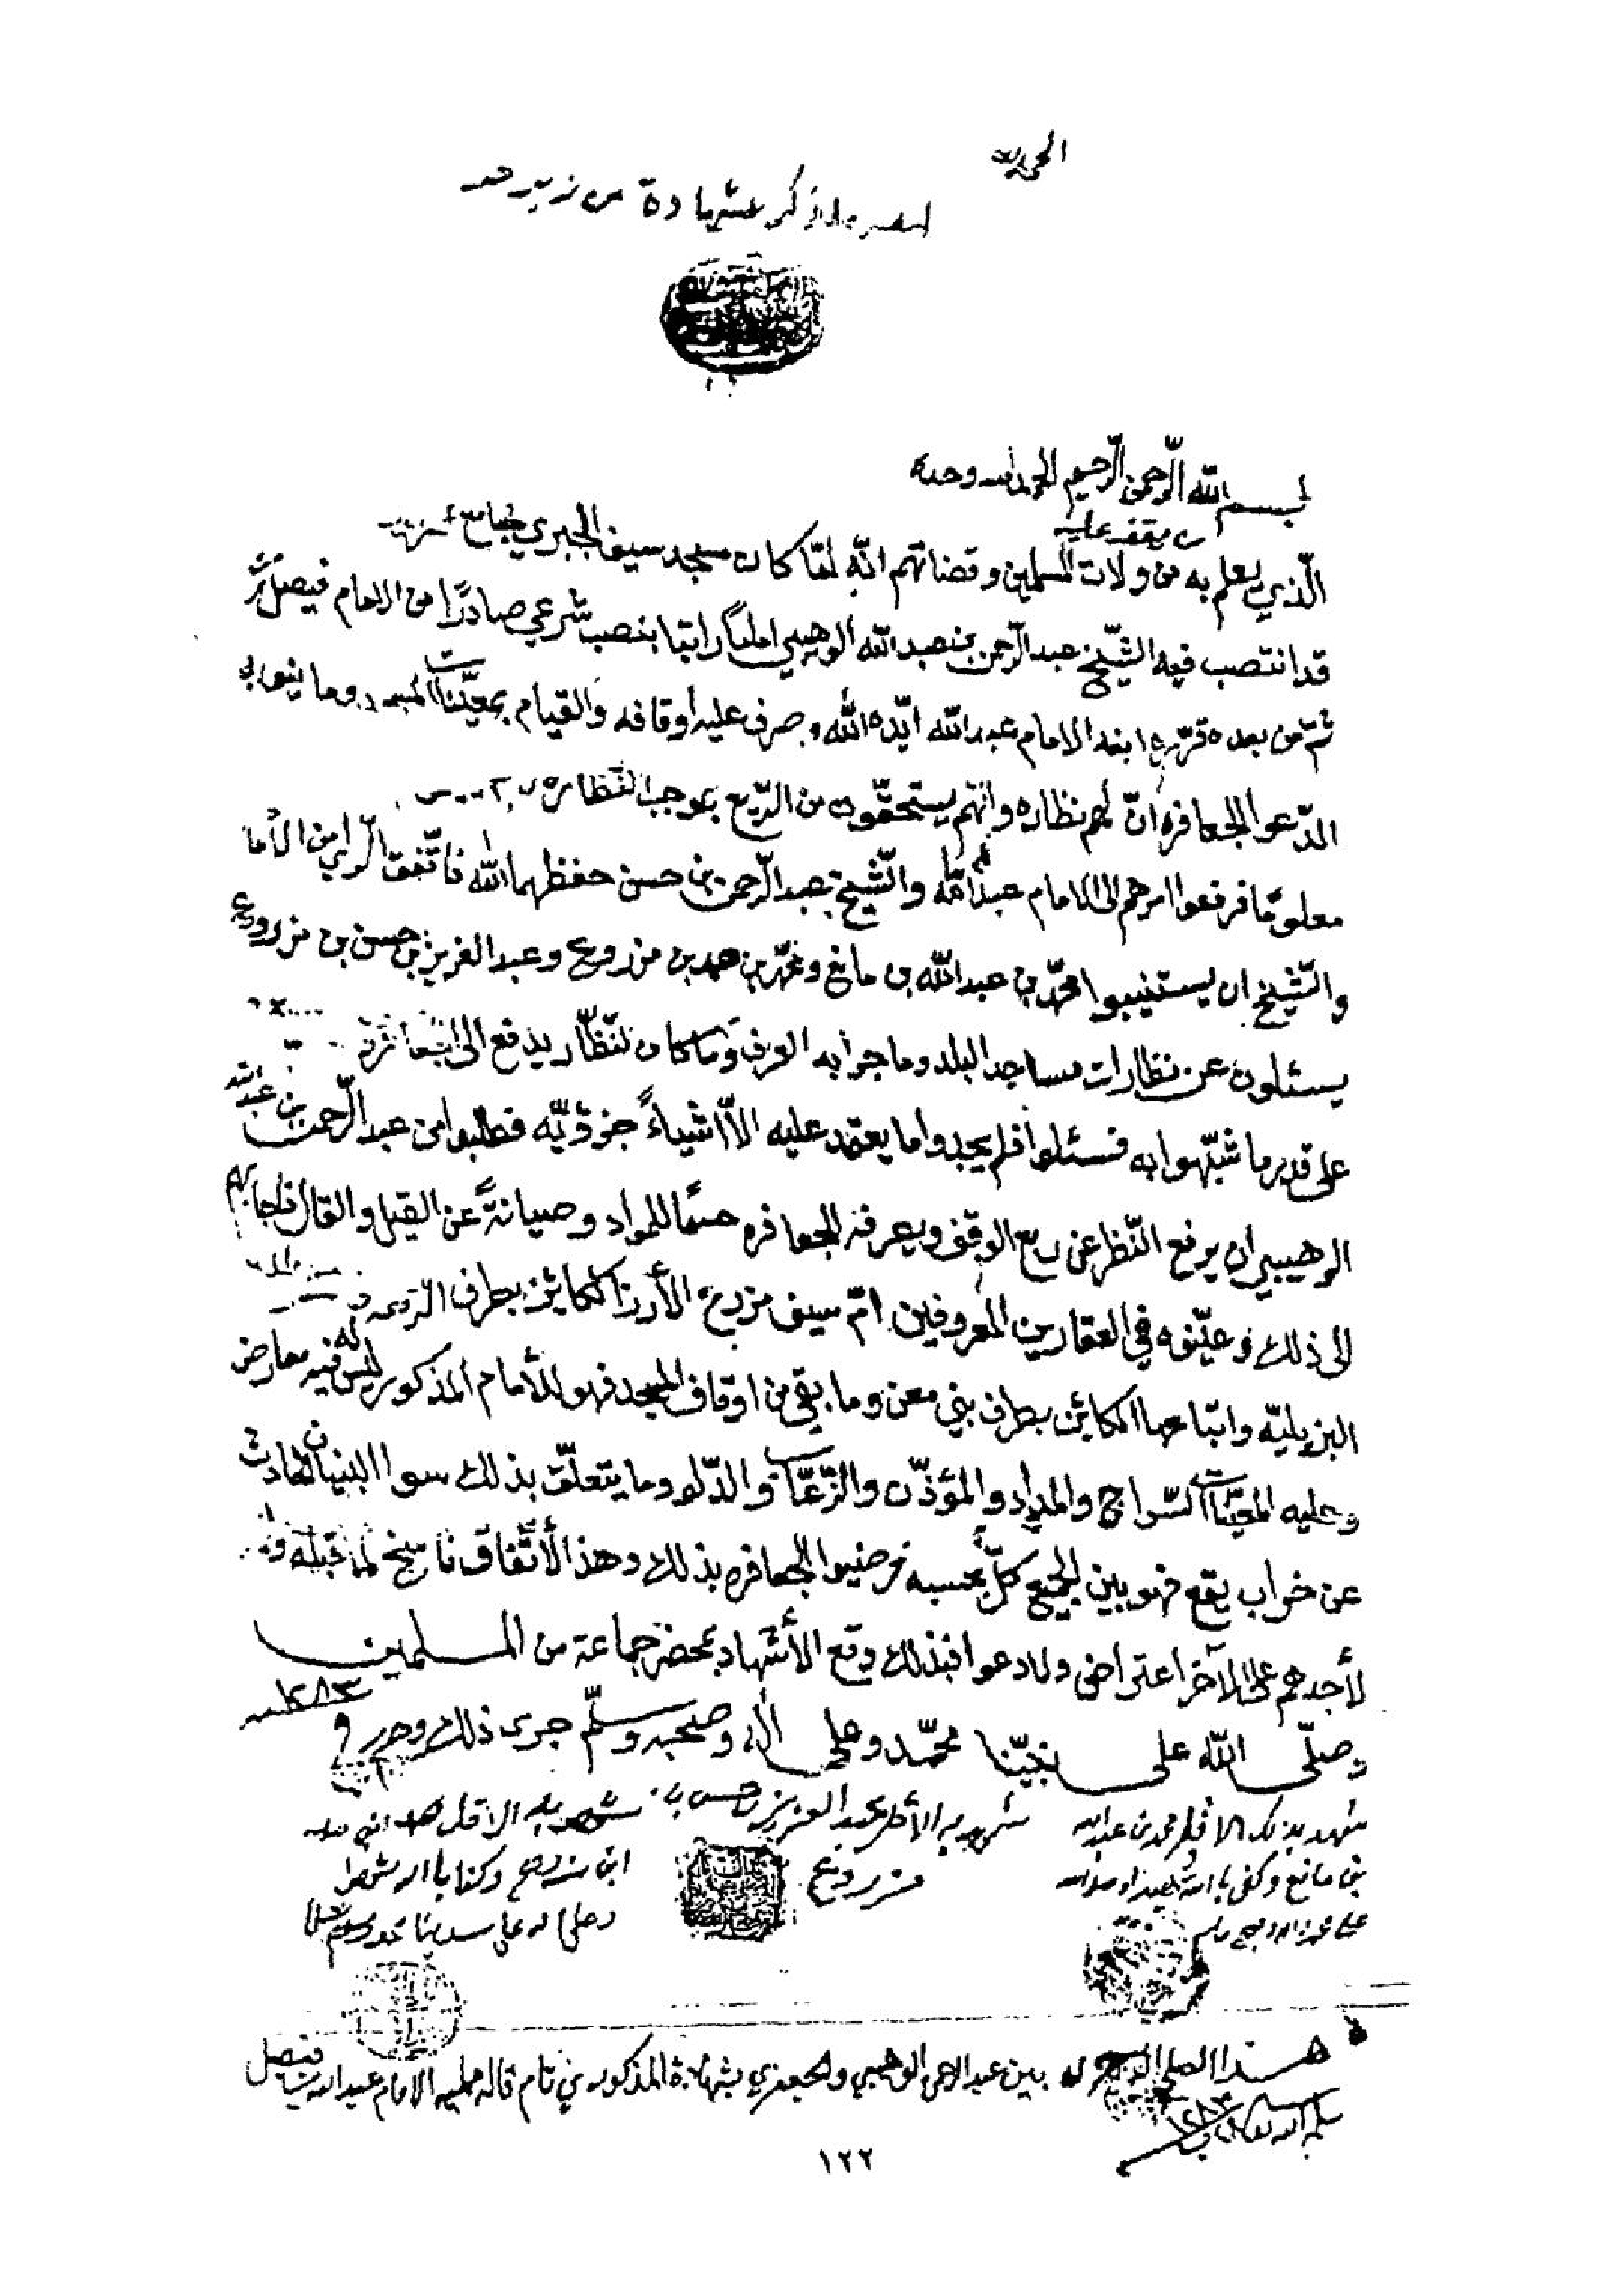 الحمد لله
ذكر شهادة من
بسم الله الرّحمن الرّحيم الحمد لله وحده
من يقف عليه
الّذي يعلم به من ولات المسلمين وقضاتهم انّه لمّا كان مسجد سيف الجبري
قد انتصب فيه الشّيخ عبد الرّحمن بن عبد الله الوهيبي اماماً راتبا بنصب شرعي صادرًا من الامام فيصل
ثمّ من بعده قرّره ابنه الامام عبد الله ايّده الله وصرف عليه أوقافه والقيام بمعيّنات المسجد وما ينوابه
ادّعوا الجعافره انّ لهم نظاره وانّهم يستحقّون من الرّيع بموجب النّظاره
معلومًا فرفعوا امرهم الى الامام عبد الله والشّيخ عبد الرّحمن بن حسن حفظهما الله فاتّفق الرّاي من الأمام
والشّيخ ان يستنيبوا محمّد بن عبد الله بن مانع ومحمّد بن حمد بن مزروع وعبد العزيز بن حسن بن مزروع
يسئلون عن نظارات مساجد البلد وما جرا به العرف وما كان للنّظّار يدفع الى
على قدر ما شبّهوا به فسئلوا فلم يجدوا ما يعتمد عليه الاّ اشياءً جزؤيّه فطلبوا من عبد الرّحمن بن عبد الله
الوهيبي ان يرفع النّظر عن ربع الوقف ويعرفه الجعافره حسمًا للمواد وصيانةً عن القيل والقال فاجابهم
الى ذلك وعيّنوه في العقارين المعروفين امّ سيف مزرع الأرزا الكائن بطرف
البزيليّه واتباعها الكائن بطرف بني معن وما بقي من اوقاف المسجد فهو للأمام المذكور ليس له فيه معارض
وعليه المعيّنات السّراج والمداد والمؤذّن والدّلو وما يتعلّق بذلك سوا البنيان الحادث
عن خراب يقع فهو بين الجميع كلّ بحسبه فرضيوا الجعافره بذلك وهذا الأتّفاق ناسخ لما قبله
لأحدهم على الآخر اعتراض ولا دعوا فبذلك وقع الأشهاد بمحضر جماعة من المسلمين
وصلّى الله على نبيّنا محمّد وعلى اله وصحبه وسلّم جرى ذلك وحرر في ١٢٨٣
شهد بذلك الاقل محمد بن عبد الله
بن مانع وكفى بالله شهيدا وصلى الله
على محمد واله وصحبه وسلم
شهد به الأقل عبد العزيز بن حسن بن
مزروع
شهد به الاقل حمد
ابن مزروع وكفا بالله شهيدا
وصلى الله على سيدنا محمد وسلم
هذا الصلح الذي جرى بين عبد الرحمن الوهيبي والجعفري بشهادة المذكورين تام قاله ممليه الامام عبد الله بن فيصل
سلمه الله تعالى ١٢٨٣
١٢٢